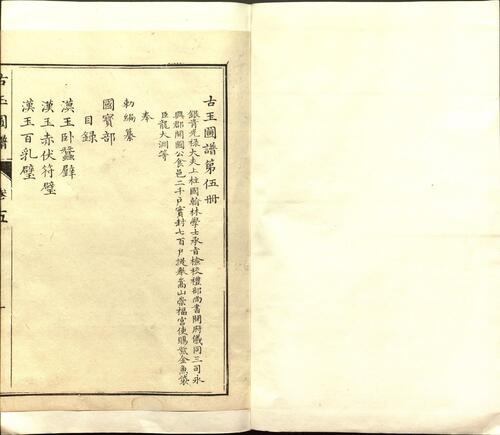 古玉圖譜第伍冊
銀青光祿大夫上柱國翰林學士承旨檢校禮部尚書開府儀同三司永
興郡開國公食邑二千戶實封七百戶提舉嵩山崇福宮使賜紫金魚袋
臣龍大淵等
奉
勅編纂
國寶部
目錄
漢玉卧蠶璧
漢玉赤伏符璧
漢玉百乳璧
古玉圖譜
卷五
一